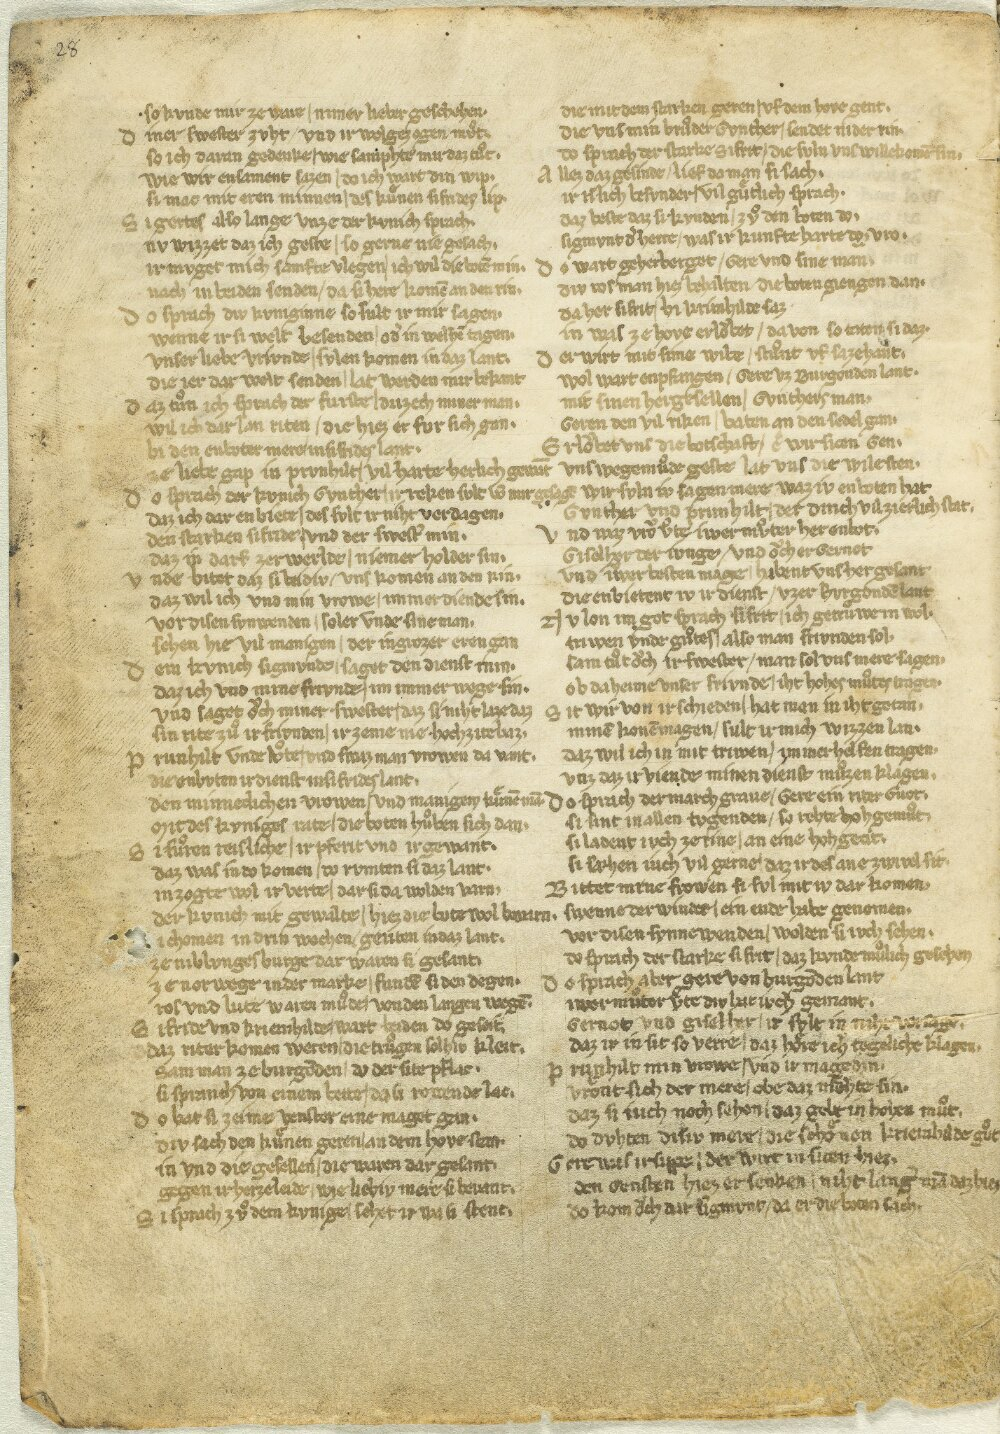 28
so kunde mir ze ware / nimer lieber geschehen.
D iner swester zuht / und ir wolgezogen můt.
so ich daran gedenke / wie samphte mir daz tůt.
wie wir ensament sazen / do ich wart din wip.
si mac mit eren minnen / des kůnen sifrides lip.
S i gertes also lange / unze der kunich sprach.
nv wizzet daz ich geste / so gerne nie gesach.
ir muget mich samfte vlegen / ich wil die botē min.
nach in beiden senden / da si here komē an den rin.
D o sprach div kuniginne / so sult ir mir sagen.
wenne ir si welt besenden / od̄ in welhē tagen.
unser liebe vriunde / sulen komen in daz lant.
die ier dar welt senden / lat werden mir bekant
D az tůn ich sprach der furste / drizech miner man.
wil ich dar lan riten / die hiez er fur sich gan.
bi den enbot er mere / in sifrides lant.
ze liebe gap in prunhilt / vil harte herlich gewāt
D o sprach der kunich Gunther / ir reken sult vō mir gesage
daz ich dar enbiete / des sult ir niht verdagen.
den starken sifride / und der swest̄ min.
daz in darf zer werlde / niemer holder sin.
U nde bitet daz si beidiv / uns komen an den rin.
daz wil ich und min vrowe / immer diende sin.
vor disen sunwenden / sol er unde sine man.
sehen hie vil manigen / der in grozer eren gan
D em kunich sigmunde / saget den dienst min.
daz ich und mine friunde / im immer wege sin.
und saget ǒch miner swester / daz si niht laze daz
sin rite zů ir friunden / ir zeme nie hochzit baz.
P runhilt unde ůte / und swaz man vrowen da vant.
die enbuten ir dienst / in sifrides lant.
den minneclichen vrowen / und manigem kůnē mā
Mit des kuniges rate / die boten hůben sich dan.
S i fůren reisliche / ir pferit und ir gewant.
daz was in do komen / do rumten si daz lant.
in zogte wol ir verte / dar si da wolden varn.
der kunich mit gewalte / hiez die bote wol bewarn.
S i chomen in drin wochen / geriten in daz lant.
ze niblunges burge dar waren si gesant.
ze norwege in der marke / fundē si den degen.
ros und lute waren můde / von den langen wegē.
S ifride und kriemhilde / wart beiden do geseit.
daz riter komen weren / die trůgen solhiv kleit.
Sam man ze burgōden / do der site pflac.
si spranch von einem bette / da si rowende lac.
D o bat si zeime venster eine maget gan.
div sach den kůnen geren / an dem hove sten.
in und die gesellen / die waren dar gesant.
gegen ir herzeleide / wie liebiv mere si bevant.
S i sprach zů dem kunige / sehet ir wa si stent.
die mit dem starken geren / uf dem hove gent.
die uns min brůder Gunther / sendet nider rin.
do sprach der starke sifrit / die suln uns willekomē sin.
A llez daz gesinde / lief da man si sach.
ir islich besunder / vil gůtlich sprach.
daz beste daz si kunden / zů den boten do.
sigmunt d̄ herre / was ir kunfte harte do vro.
D o wart geherberget / Gere und sine man.
div ros man hiez behalten / die boten giengen dan.
da her sifrit / bi krimhilde saz
in was ze hove erlǒbet / da von so taten si daz.
D er wirt mit sime wibe / stůnt uf sa zehant.
wol wart enpfangen / Gere uz Burgonden lant.
mit sinen hergesellen / Gunthers man.
Geren den vil riken / baten an den sedel gan.
E rlǒbet uns die botschaft / e wir sicen gen.
uns wegemůde geste lat uns die wile sten.
wir suln iv sagen mere waz iv enboten hat
Gunther und prunhilt / det dinch vil zierlich stat.
U nd waz vrǒ ůte iwer můter her enbot.
Giselher der iunge / und ǒch er Gernot
und iwer besten mage / habent uns her gesant
die enbietent iv ir dienst / uzer burgondē lant
N u lon im got sprach sifrit / ich getrůwe in wol.
triwen unde gůtes / also man friunden sol.
sam tůt ǒch ir swester / man sol uns mere sagen.
ob da heime unser friunde / iht hohes můtes tragen.
S it wir von ir schieden / hat man in iht getan.
minē konemagen / sult ir mich wizzen lan.
daz wil ich in mit triwen / immer helfen tragen.
unz daz ir viende minen dienst můzen klagen.
D o sprach der march grave / Gere ein riter gůt.
si sint in allen tugenden / so rehte hohgemůt.
si ladent iuch ze rine / an eine hohgecit.
si sehen iuch vil gerne / daz ir des ane zwivel sit.
B ittet mine frowen si sul mit iv dar komen.
swenne der winder / ein ende habe genomen.
vor disen sunnewenden / wolden si iuch sehen.
do sprach der starke sifrit / daz kunde můlich geschen
D o sprach aber gere von burgōden lant
iwer můter ůte div hat iuch gemant.
Gernot und giselher / ir sult in niht versagē.
daz ir in sit so verre / daz hǒre ich tegeliche klagen.
P runhilt min vrowe / und ir magedin.
vrǒut sich der mere / obe daz mohte sin.
daz si iuch noch sehen / daz gebt in hohen můt.
do duhten disiv mere / die schǒnen kriemhilde gůt
G ere was ir sippe / der wirt in sicen hiez.
den gensten hiez er senken / niht lanḡ mā daz liez
do kom ǒch dar sigmunt / da er die boten sach.